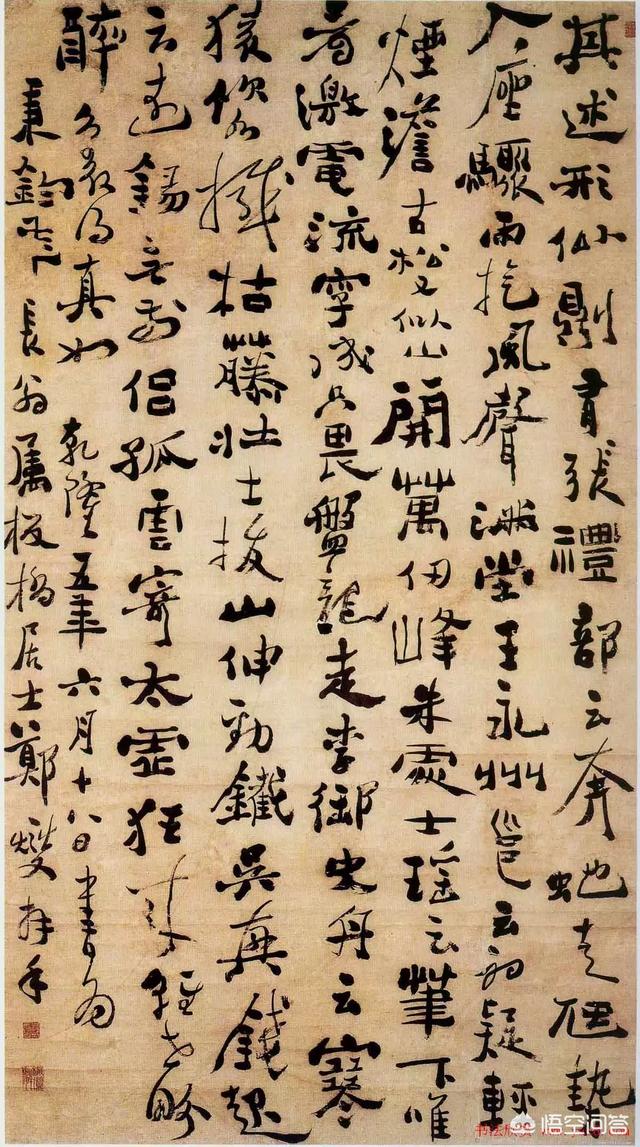 其述形似則有張禮部云奔虵走虺勢
入座驟雨旋風聲滿堂王永州邕云初疑輕
煙澹古松又似山開萬仞峰朱處士瑤云筆下唯
看激電流字成只畏盤龍走李御史舟云寒
猿飲水撼枯藤壯士拔山伸勁鐵吳興錢起
云遠錫無前侶孤雲寄太虛狂來輕世界
醉裏得真如 乾隆五年六月十八日書為
秉鈞長翁屬板橋居士鄭燮拜手
悟空问答